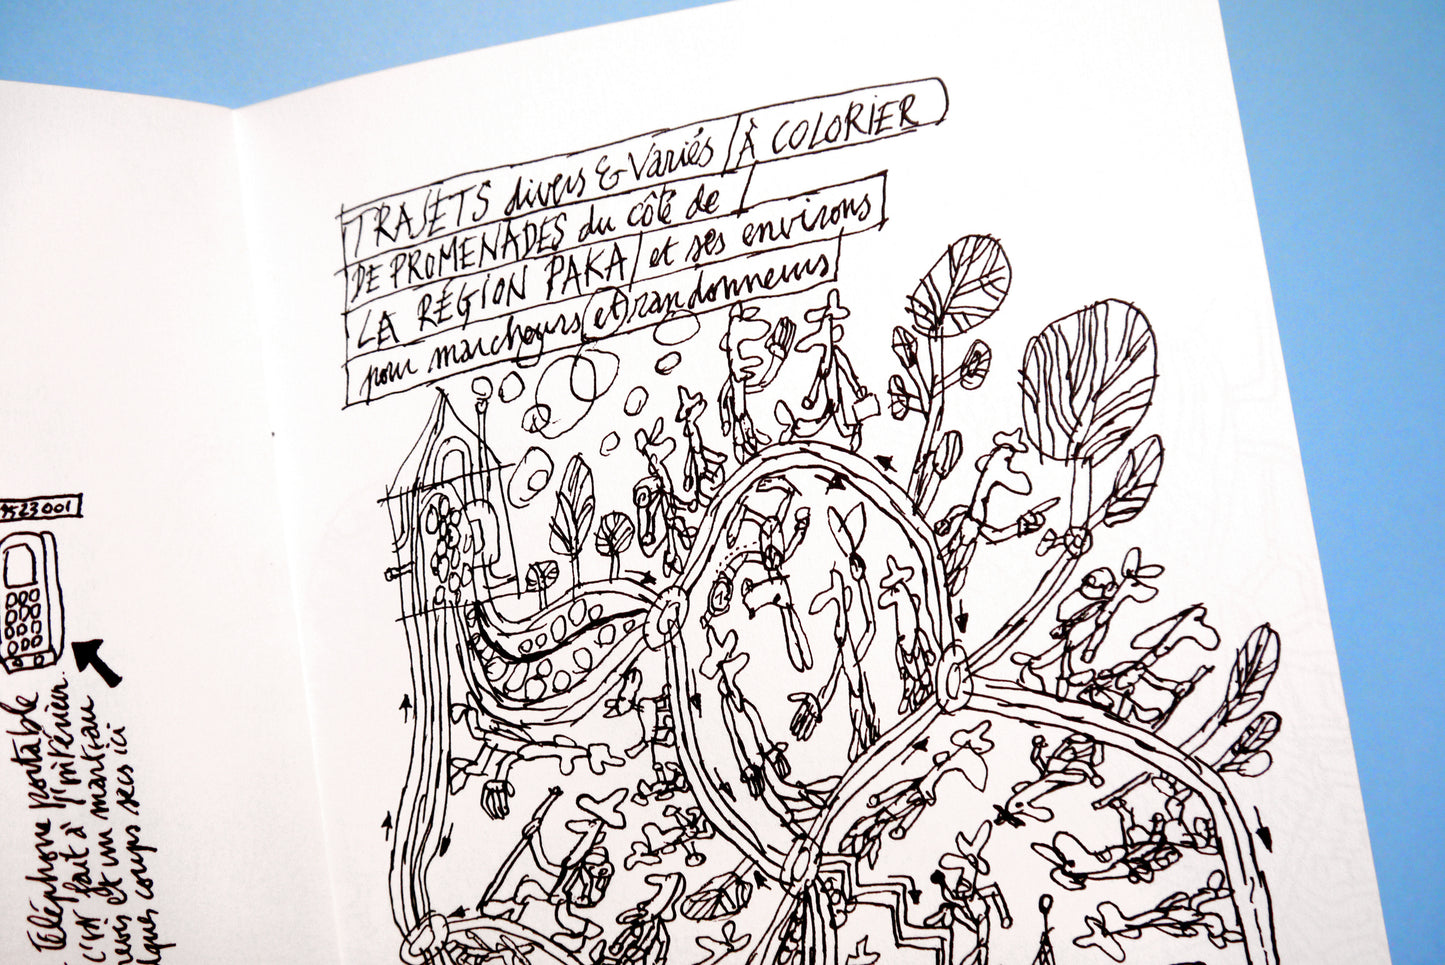 TRAJETS divers & Variés À COLORIER
DE PROMENADES du côté de
LA RÉGION PAKA et ses environs
pour marcheurs et randonneurs
23001
Téléphone portable
fait à l'intérieur
et un marteau
ques coups secs ici